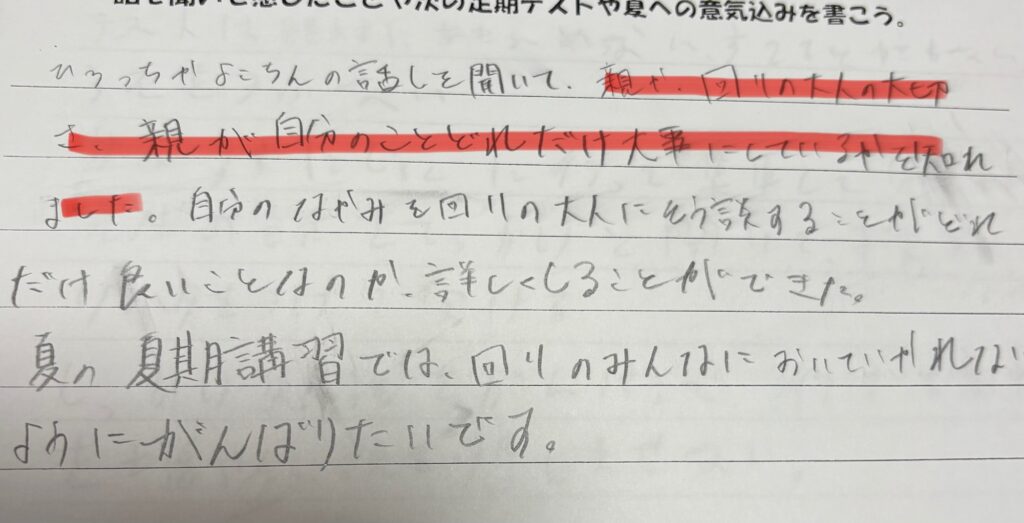 話を聞いて感じたことや次の定期テストや夏への意気込みを書こう。
ひろっちやよこちんの話しを聞いて、親や、回りの大人の大切
さ、親が自分のことどれだけ大事にしているかを知れ
ました。自分のはやみを回りの大人にそう談することがどれ
だけ良いことはのか、詳しくしることができた。
夏の夏期講習では、回りのみんなにおいていかれない
ようにがんばりたいです。